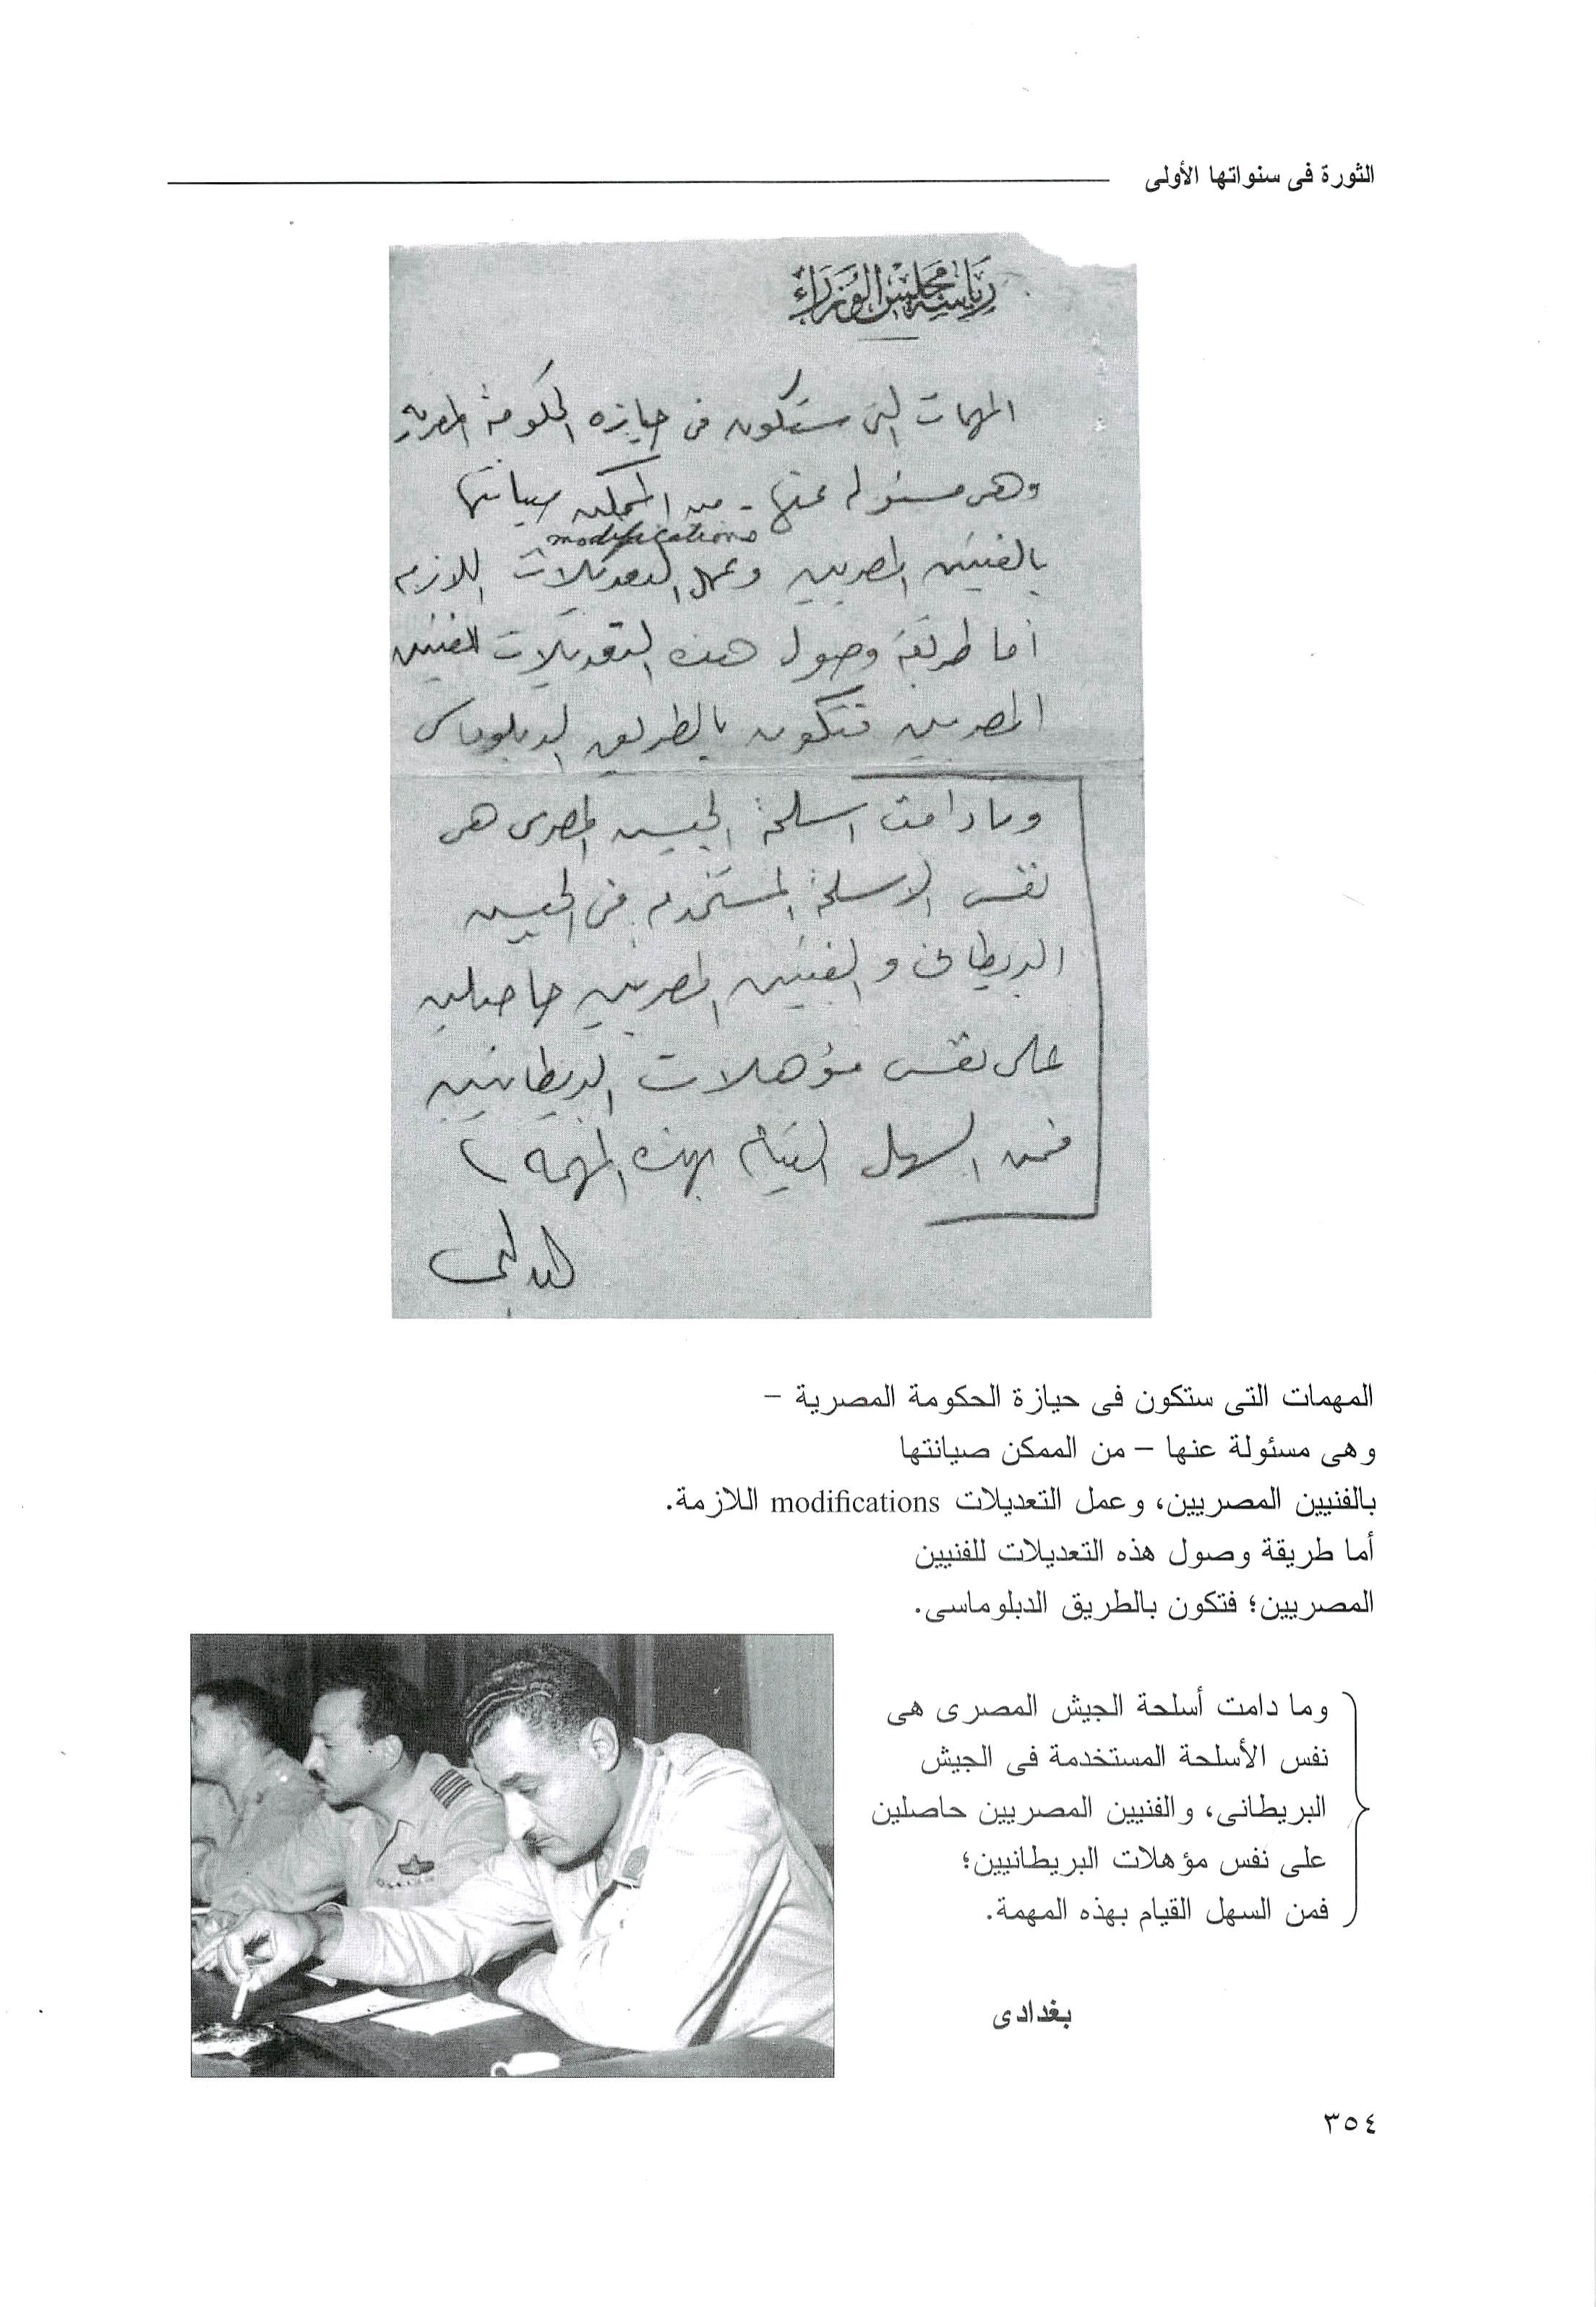 الثورة فى سنواتها الأولى
رياسة مجلس الوزراء
المهمات التى ستكون فى حيازه الحكومة المصريه
وهى مسئوله عنها - من الممكن صيانتها
modifications
بالفنيين المصريين وعمل التعديلات اللازمه
أما طريقة وصول هذه التعديلات للفنيين
المصريين فتكون بالطريق الدبلوماسى
وما دامت اسلحة الجيش المصرى هى
نفس الاسلحة المستخدمه فى الجيش
البريطانى و الفنيين المصريين حاصلين
على نفس مؤهلات البريطانيين
فمن السهل القيام بهذه المهمه
المهمات التى ستكون فى حيازة الحكومة المصرية –
وهى مسئولة عنها – من الممكن صيانتها
بالفنيين المصريين، وعمل التعديلات modifications اللازمة.
أما طريقة وصول هذه التعديلات للفنيين
المصريين؛ فتكون بالطريق الدبلوماسى.
وما دامت أسلحة الجيش المصرى هى
نفس الأسلحة المستخدمة فى الجيش
البريطانى، والفنيين المصريين حاصلين
على نفس مؤهلات البريطانيين؛
فمن السهل القيام بهذه المهمة.
بغدادى
٣٥٤